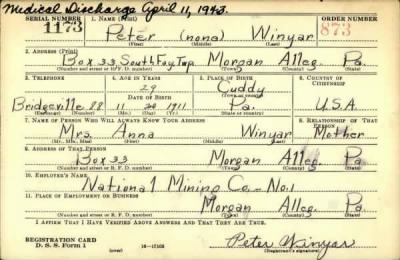 Medical Discharge April 11, 1943.
SERIAL NUMBER 1. NAME (Print) ORDER NUMBER
1173 Peter (none) Winyar 873
(First) (Middle) (Last)
2. ADDRESS (Print)
Box 33 South Fay Twp. Morgan Alleg. Pa.
(Number and street or R. F. D. number) (Town) (County) (State)
3. TELEPHONE 4. AGE IN YEARS 5. PLACE OF BIRTH 6. COUNTRY OF CITIZENSHIP
29 Cuddy
DATE OF BIRTH (Town or county)
Bridgeville 88 11 20 1911 Pa. U.S.A.
(Exchange) (Number) (Mo.) (Day) (Yr.) (State or country)
7. NAME OF PERSON WHO WILL ALWAYS KNOW YOUR ADDRESS 8. RELATIONSHIP OF THAT PERSON
Mrs. Anna Winyar Mother
(Mr., Mrs., Miss) (First) (Middle) (Last)
9. ADDRESS OF THAT PERSON
Box 33 Morgan Alleg. Pa.
(Number and street or R. F. D. number) (Town) (County) (State)
10. EMPLOYER'S NAME
National Mining Co. - No. 1
11. PLACE OF EMPLOYMENT OR BUSINESS
Morgan Alleg. Pa.
(Number and street or R. F. D. number) (Town) (County) (State)
I AFFIRM THAT I HAVE VERIFIED ABOVE ANSWERS AND THAT THEY ARE TRUE.
REGISTRATION CARD
D. S. S. Form 1 (over) Peter Winyar
(Registrant's signature)